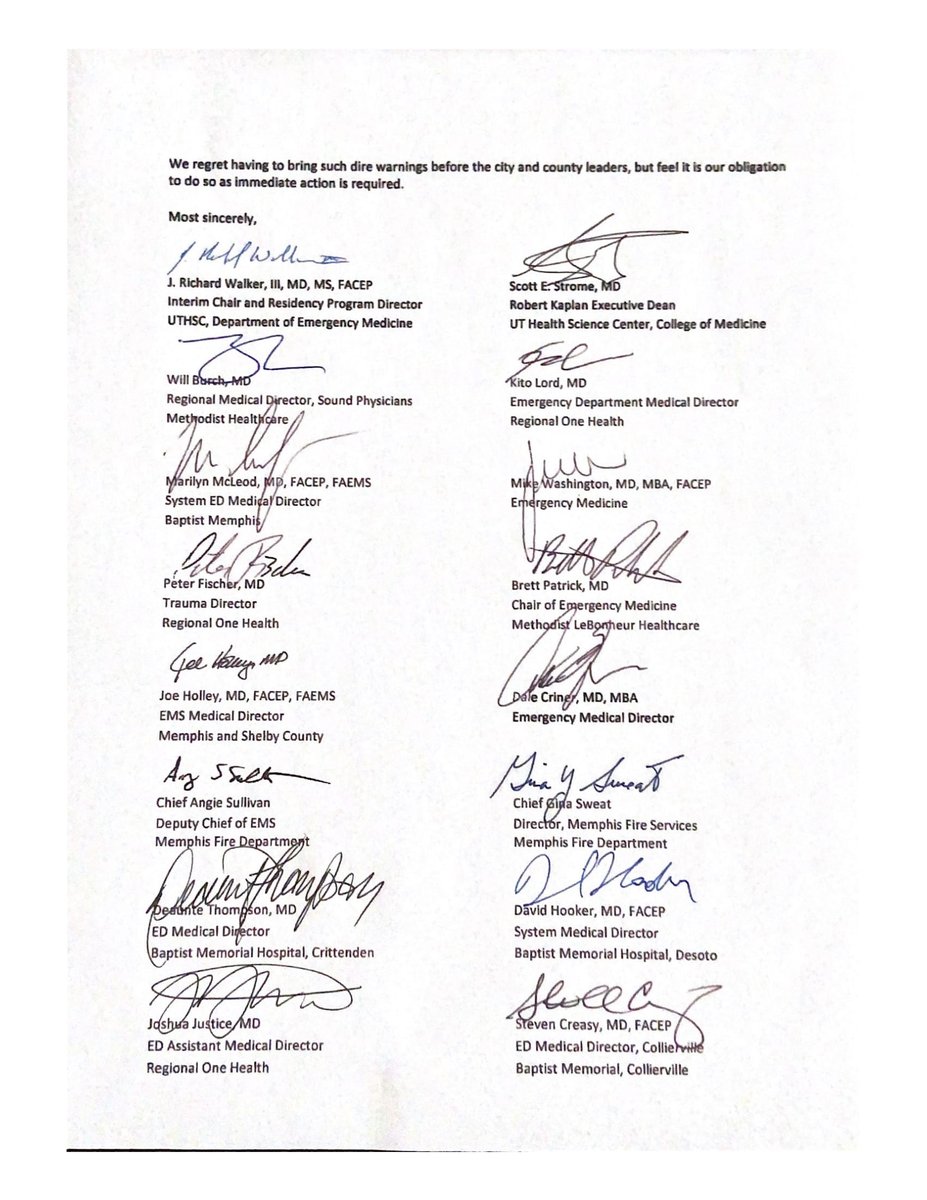 We regret having to bring such dire warnings before the city and county leaders, but feel it is our obligation
to do so as immediate action is required.
Most sincerely,
J. Richard Walker, III, MD, MS, FACEP
Interim Chair and Residency Program Director
UTHSC, Department of Emergency Medicine
Scott E. Strome, MD
Robert Kaplan Executive Dean
UT Health Science Center, College of Medicine
Will Burch, MD
Regional Medical Director, Sound Physicians
Methodist Healthcare
Kito Lord, MD
Emergency Department Medical Director
Regional One Health
Marilyn McLeod, MD, FACEP, FAEMS
System ED Medical Director
Baptist Memphis
Mike Washington, MD, MBA, FACEP
Emergency Medicine
Peter Fischer
Peter Fischer, MD
Trauma Director
Regional One Health
Brett Patrick, MD
Chair of Emergency Medicine
Methodist LeBonheur Healthcare
Joe Holley MD
Joe Holley, MD, FACEP, FAEMS
EMS Medical Director
Memphis and Shelby County
Dale Criner, MD, MBA
Emergency Medical Director
Chief Angie Sullivan
Deputy Chief of EMS
Memphis Fire Department
Gina Y Sweat
Chief Gina Sweat
Director, Memphis Fire Services
Memphis Fire Department
Deaunte Thompson, MD
ED Medical Director
Baptist Memorial Hospital, Crittenden
David Hooker, MD, FACEP
System Medical Director
Baptist Memorial Hospital, Desoto
Joshua Justice, MD
ED Assistant Medical Director
Regional One Health
Steven Creasy, MD, FACEP
ED Medical Director, Collierville
Baptist Memorial, Collierville